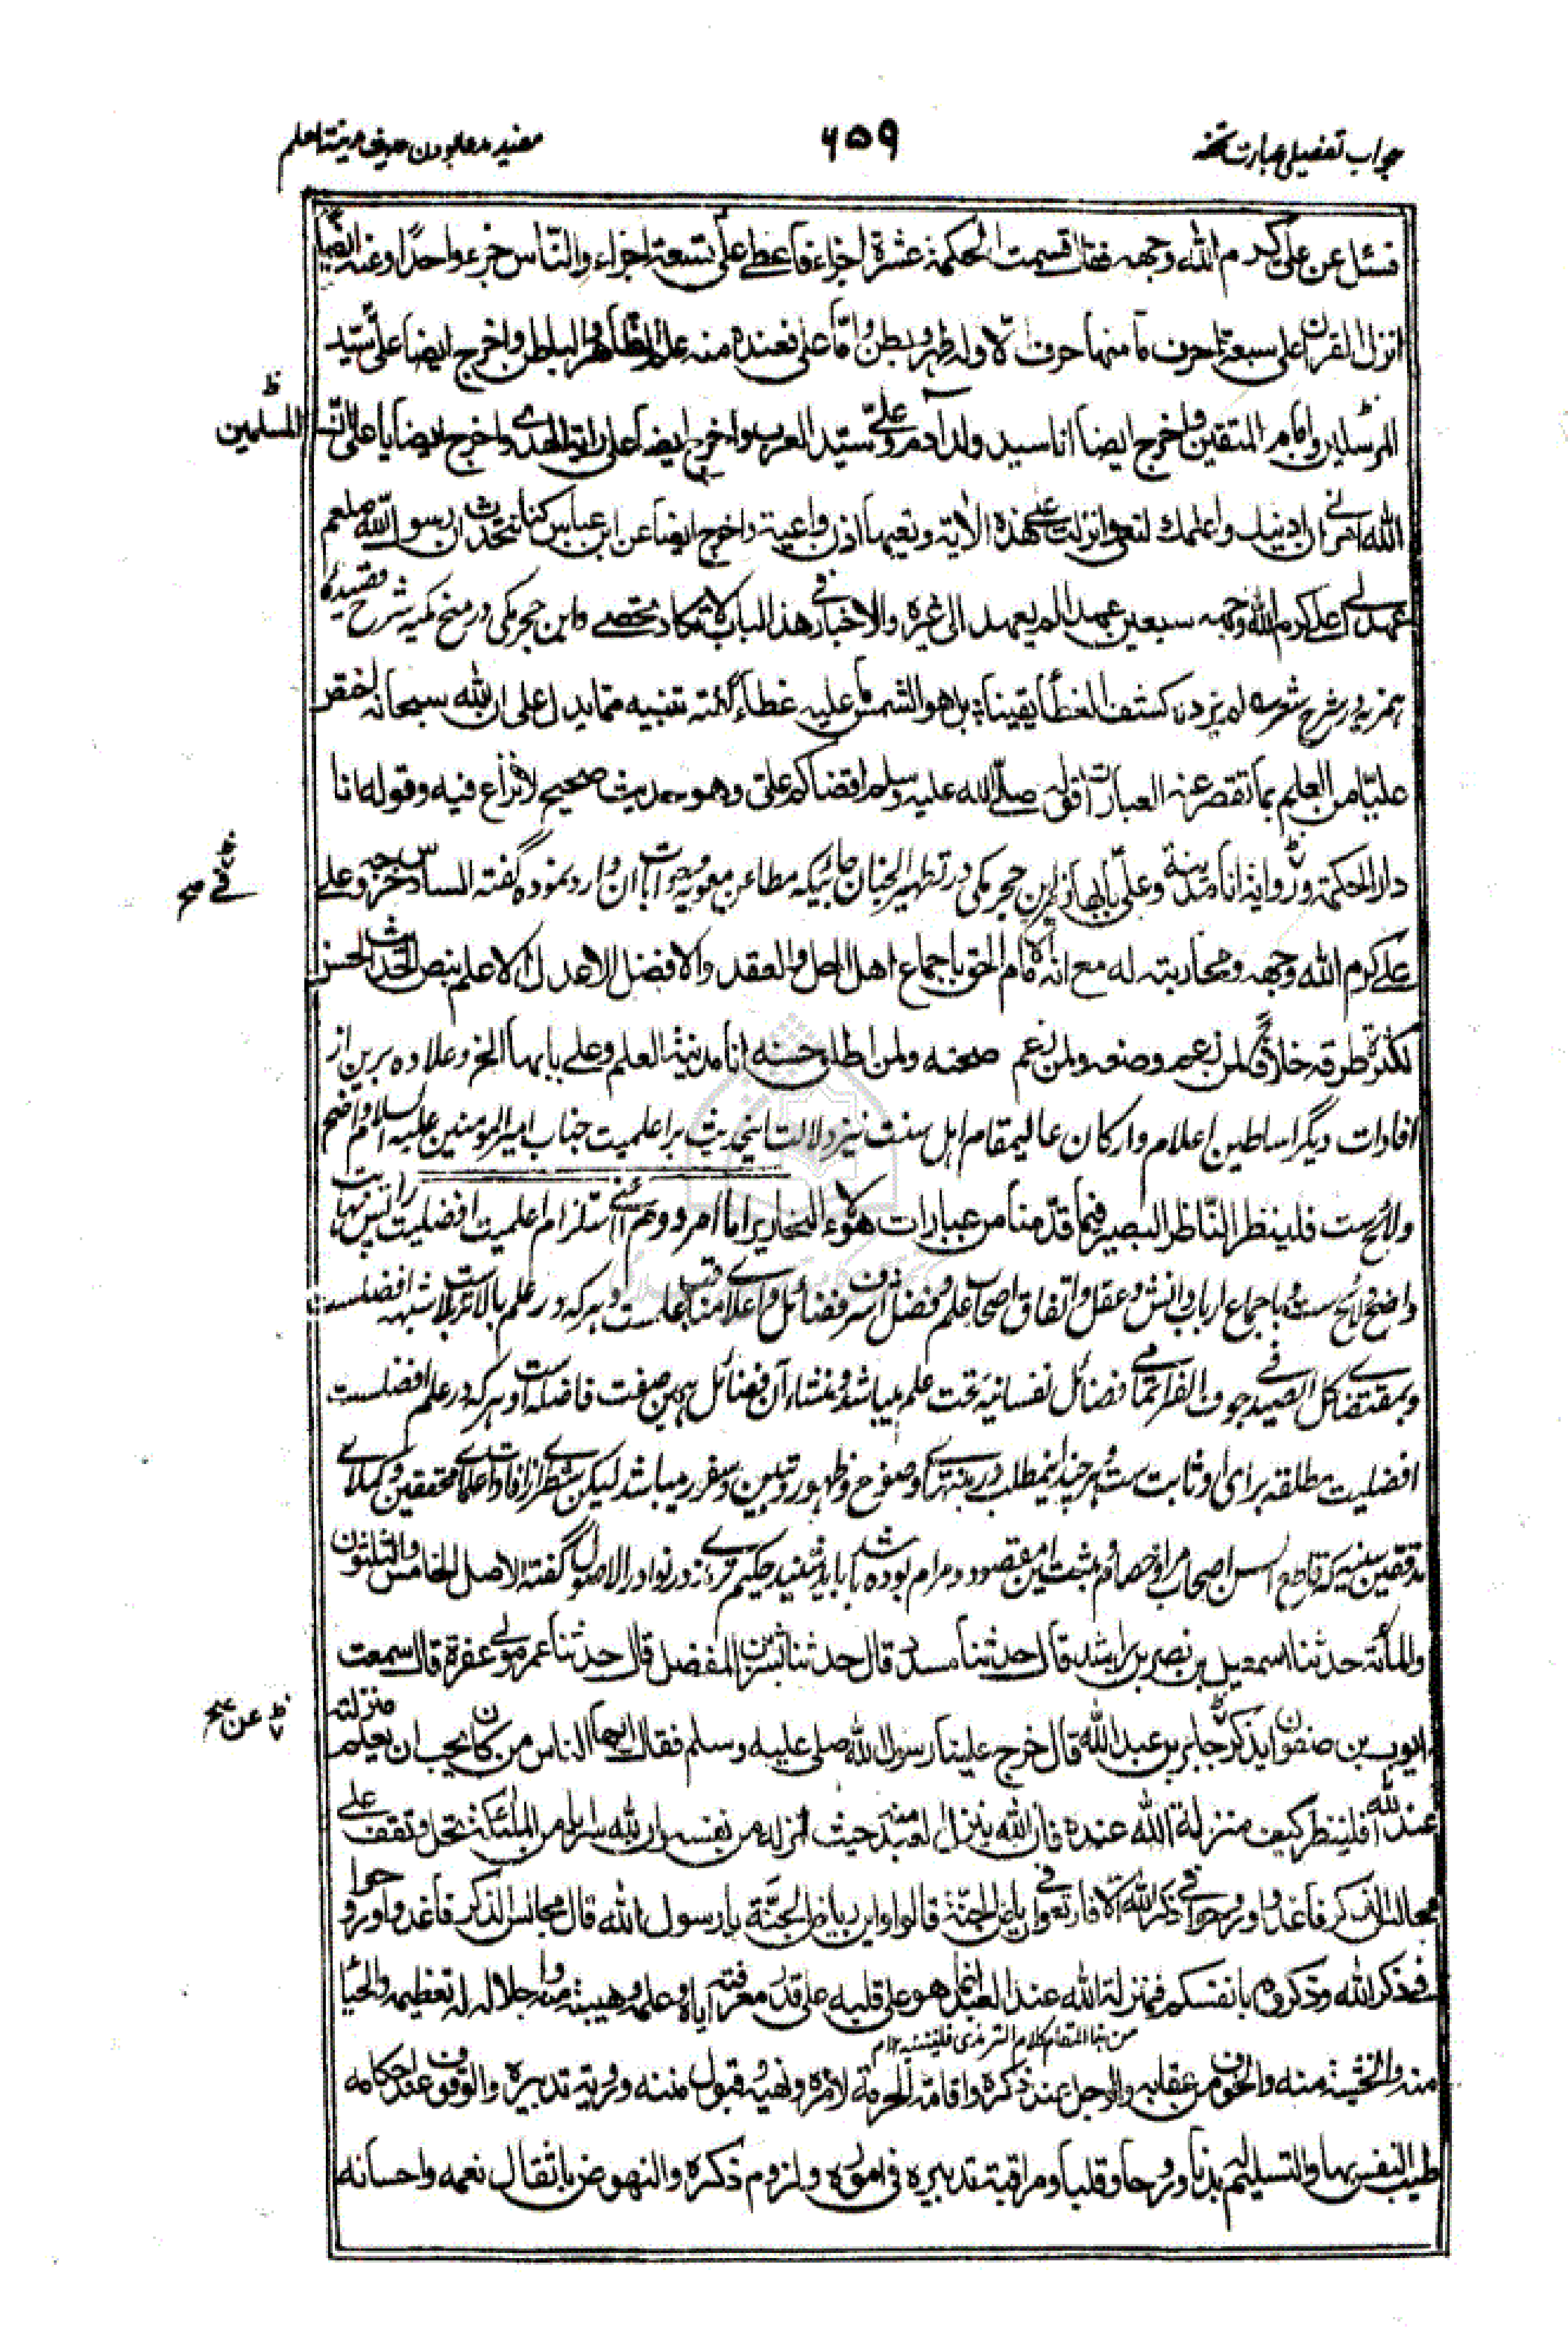 جواب تفصیلی عبارت تحفه
۶۵۹
مفید نبودن حدیث مدینة العلم
فسئل عن علی کرم الله وجهه فقال قسمت الحکمة عشرة اجزاء فاعطی علی تسعة اجزاء والناس جزء واحدا وعنه ایضا
انزل القران علی سبعة احرف ما منها حرف الا وله ظهر وبطن واما علی فعنده منه علم الظاهر والباطن واخرج ایضا علی سید
المرسلین وامام المتقین واخرج ایضا انا سید ولد آدم وعلی سید العرب واخرج ایضا علی رایة الهدی واخرج ایضا یا علی ان
المسلمین
الله امرنی ان ادنیك واعلمك لتعی وانزلت علی هذه الآیة وتعیها اذن واعیة واخرج ایضا عن ابن عباس کنا نتحدث ان رسول الله صلعم
عهد الی علی کرم الله وجهه سبعین عهدا لم یعهد الی غیره والاخبار فی هذا الباب لا تکاد تحصی وابن حجر مکی در منح مکیه شرح قصیده
همزیه در شرح شعر لم یزده کشف الغطا یقینا بل هو الشمس ما علیه غطاء گفته تنبیه مما یدل علی ان الله سبحانه اختص
علیا من العلم بما تقصر عنه العبارات قوله صلی الله علیه وسلم اقضاکم علی وهو حدیث صحیح لا نزاع فیه وقوله انا
دار الحکمة وروایة انا مدینة وعلی بابها ونیز ابن حجر مکی در تطهیر الجنان جائیکه مطاعن معویه وجوابات آن وارد نموده گفته السادس خروجه علی
علی کرم الله وجهه ومحاربته له مع انه الامام الحق باجماع اهل الحل والعقد والافضل الاعدل الاعلم بنص الحدیث الحسن
لکثرة طرقه خلافا لمن زعم وضعه ولمن زعم صحته ولمن اطلق حسنه انا مدینة العلم وعلی بابها الخ وعلاوه برین از
افادات دیگر اساطین اعلام وارکان عالیمقام اهل سنت نیز دلالت این حدیث بر اعلمیت جناب امیر المومنین علیه السلام واضح
ولائح ست فلینظر الناظر البصیر فیما قدمنا من عبارات هولاء النحاریر اما امر دوم اعنی استلزام اعلمیت افضلیت را پس بنهایت
واضح ولائح ست و باجماع ارباب دانش وعقل واتفاق اصحاب علم وفضل اشرف فضائل واعلای مناقب علم ست وهر که در علم بالاترست بلا شبهه افضلست
وبمقتضای کل الصید فی جوف الفرا تمامی فضائل نفسانیه تحت علم میباشد ومنشاء آن فضائل همین صفت فاضله است وهر که در علم افضلست
افضلیت مطلقه برای او ثابت ست وهر چند این مطلب در نهایت وضوح وظهور وتبین وسفور میباشد لیکن شطری از افادات علمای محققین وکملای
مدققین سنیه که قاطع السن اصحاب مرا وخصام ومثبت این مقصود ومرام بوده باشد باید شنید حکیم ترمذی در نوادر الاصول گفته الاصل الخامس والثلثون
والمائة حدثنا اسمعیل بن نصر بن راشد قال حدثنا مسدد قال حدثنا بشر بن المفضل قال حدثنا عمر مولی عفرة قال سمعت
ایوب بن صفوان یذکر جابر بن عبدالله قال خرج علینا رسول الله صلی علیه وسلم فقال ایها الناس من کان یحب ان یعلم منزلته
عن
عند الله فلینظر کیف منزلة الله عنده فان الله ینزل العبد منه حیث انزله من نفسه ان لله سرایا من الملئکة تحل وتقف علی
مجالس الذکر فاغدوا وروحوا فی ذکر الله الا فارتعوا فی ریاض الجنة قالوا واین ریاض الجنة یا رسول الله قال مجالس الذکر فاغدوا وروحوا
فی ذکر الله وذکروه بانفسکم فمنزلة الله عند العبد انما هو علی قلبه علی قدر معرفته ایاه وعلمه وهیبته منه واجلاله له تعظیمه والحیا
من هنا ابتداء کلام الترمذی فلیتنبه ۱۲م
منه والخشیة منه والخوف من عقابه والوجل عند ذکره واقامة الحرمة لامره ونهیه وقبول مننه ورویة تدبیره والوقوف عند احکامه
طیب النفس بها والتسلیم له بدنا وروحا وقلبا ومراقبة تدبیره فی اموره ولزوم ذکره والنهوض باثقال نعمه واحسانه